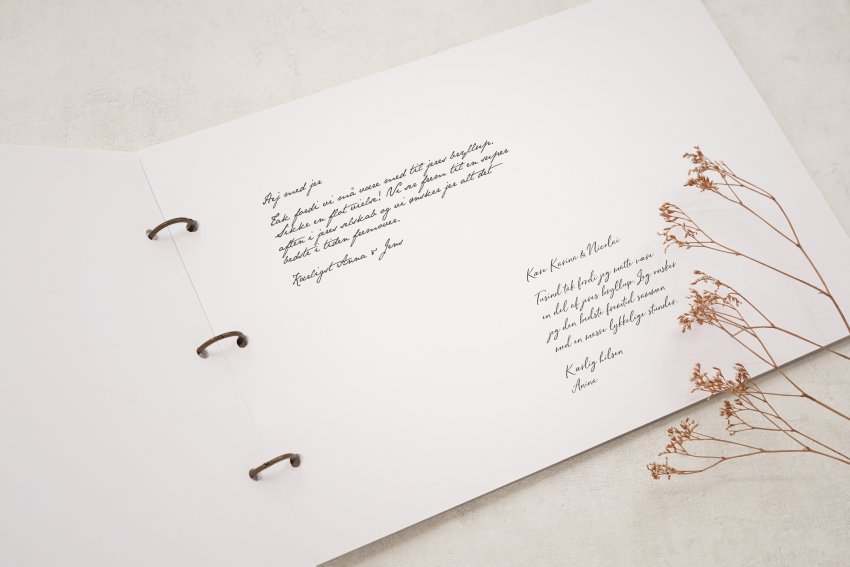 Hej med jer
Tak fordi vi må være med til jeres bryllup.
Sikke en flot vielse! Vi ser frem til en super
aften i jeres selskab og vi ønsker jer alt det
bedste i tiden fremover.
Kærligst Anna & Jens
Kære Karina & Nicolai
Tusind tak fordi jeg måtte være
en del af jeres bryllup. Jeg ønsker
jeg den bedste fremtid sammen
med en masse lykkelige stunder.
Kærlig hilsen
Anina